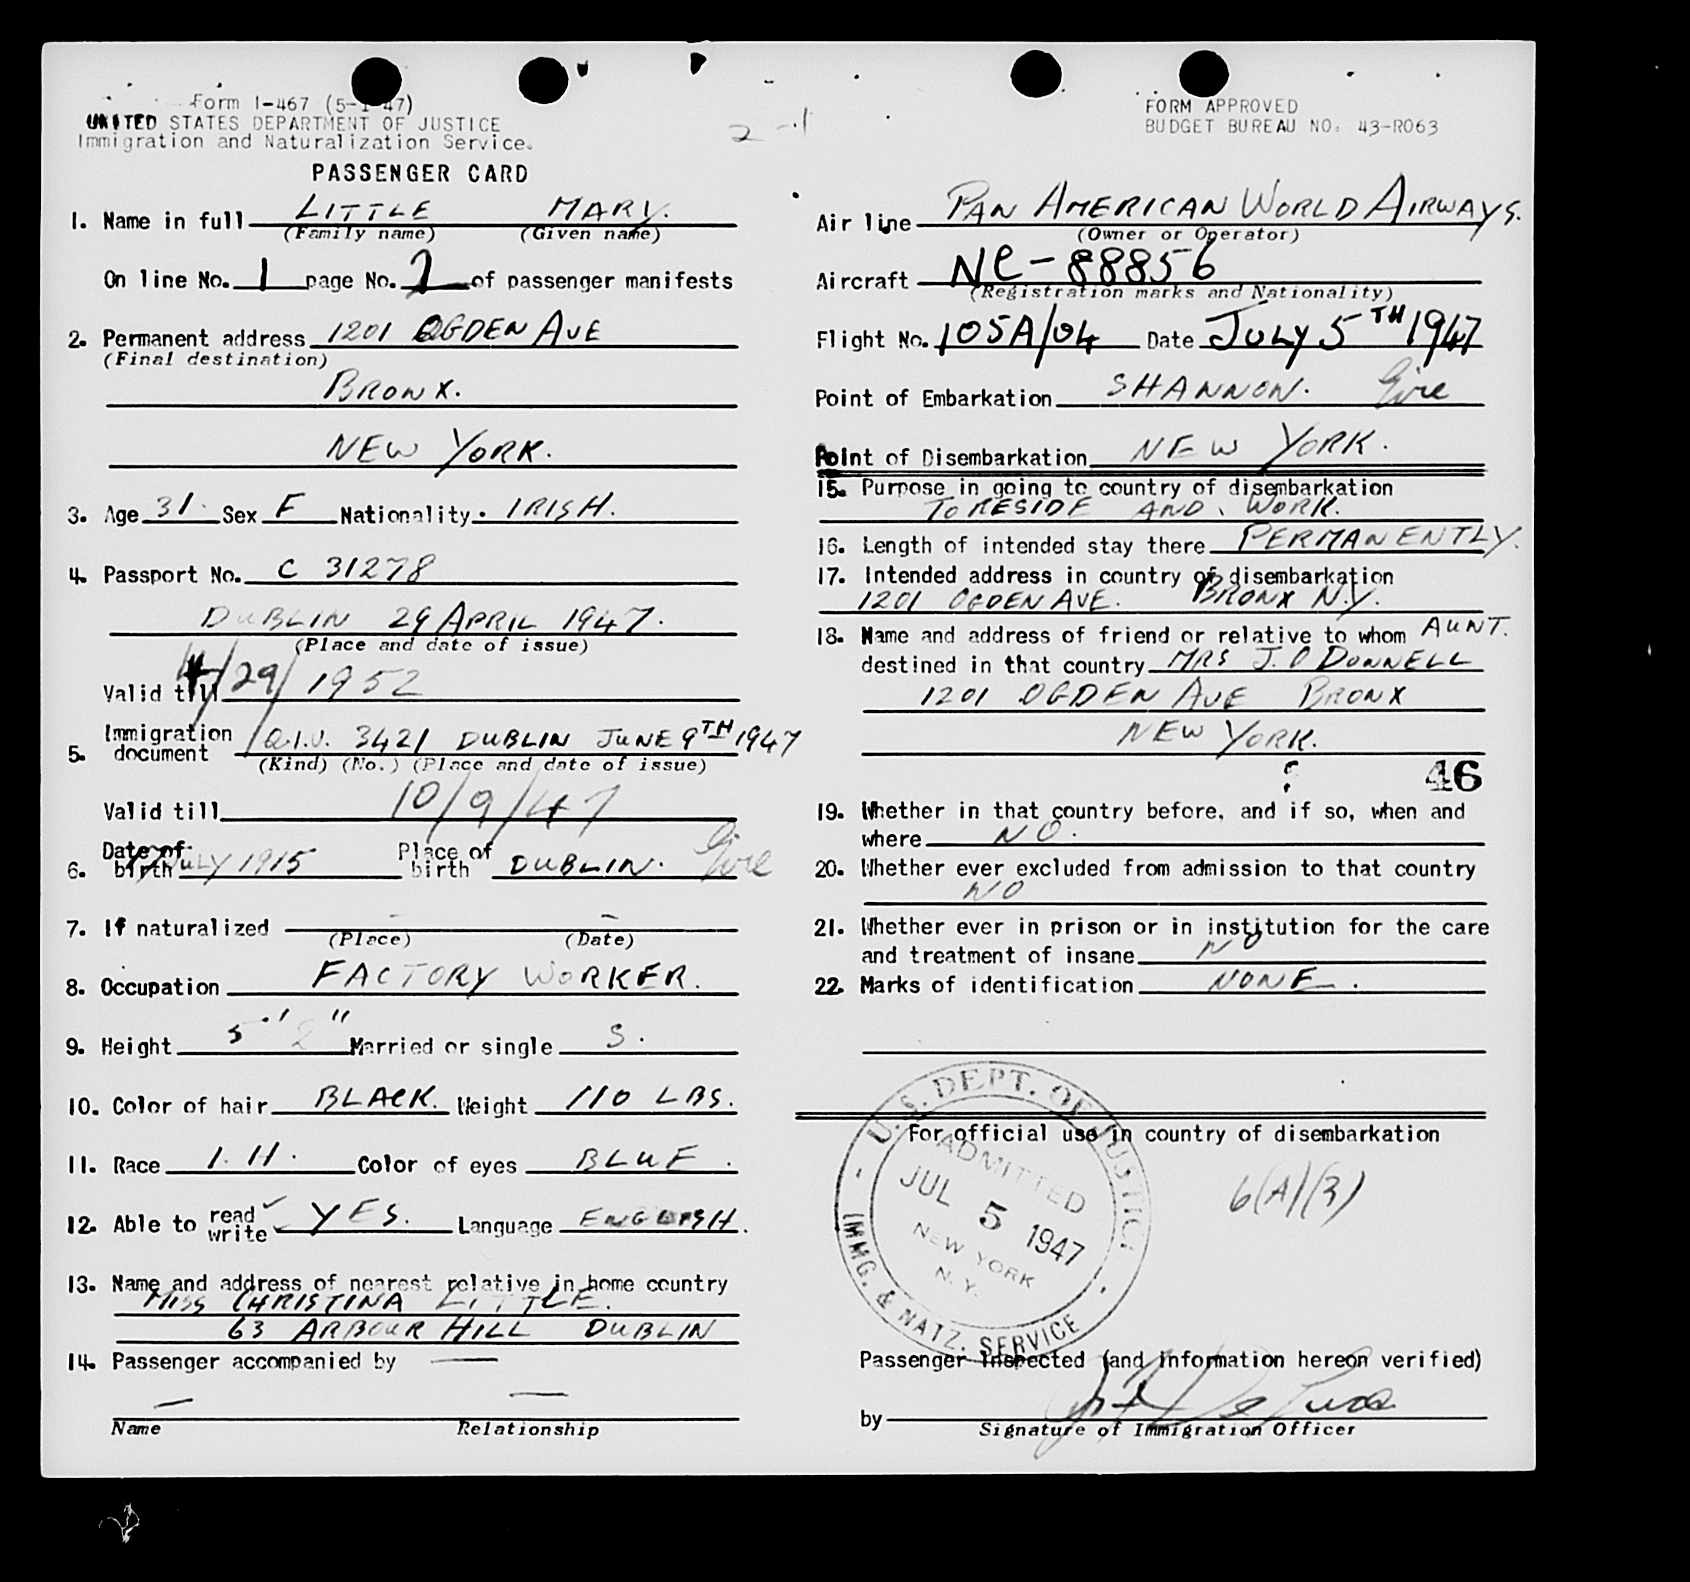 Form I-467 (5-1-47)
UNITED STATES DEPARTMENT OF JUSTICE
Immigration and Naturalization Service.
PASSENGER CARD
1. Name in full LITTLE MARY.
(Family name) (Given name)
On line No. 1 page No. 2 of passenger manifests
2. Permanent address 1201 OGDEN AVE
(Final destination)
BRONX.
NEW YORK.
3. Age 31. Sex F Nationality. IRISH.
4. Passport No. C 31278
DUBLIN 29 APRIL 1947.
(Place and date of issue)
Valid till 4/29/1952
5. Immigration document Q.I.V. 3421 DUBLIN JUNE 9TH 1947
(Kind) (No.) (Place and date of issue)
Valid till 10/9/47
6. Date of birth 17 JULY 1915 Place of birth DUBLIN. Eire
7. If naturalized - -
(Place) (Date)
8. Occupation FACTORY WORKER.
9. Height 5' 2" Married or single S.
10. Color of hair BLACK. Weight 110 LBS.
11. Race I.H. Color of eyes BLUE.
12. Able to read write YES. Language ENGLISH.
13. Name and address of nearest relative in home country
MISS CHRISTINA LITTLE.
63 ARBOUR HILL DUBLIN
14. Passenger accompanied by —
— —
Name Relationship
2-1
FORM APPROVED
BUDGET BUREAU NO. 43-R063
Air line PAN AMERICAN WORLD AIRWAYS.
(Owner or Operator)
Aircraft NC-88856
(Registration marks and Nationality)
Flight No. 105A/04 Date JULY 5TH 1947
Point of Embarkation SHANNON. Eire
Point of Disembarkation NEW YORK.
15. Purpose in going to country of disembarkation
TO RESIDE AND WORK.
16. Length of intended stay there PERMANENTLY.
17. Intended address in country of disembarkation
1201 OGDEN AVE. BRONX N.Y.
18. Name and address of friend or relative to whom AUNT.
destined in that country MRS J. O DONNELL
1201 OGDEN AVE BRONX
NEW YORK.
46
19. Whether in that country before, and if so, when and
where NO.
20. Whether ever excluded from admission to that country
NO
21. Whether ever in prison or in institution for the care
and treatment of insane NO
22. Marks of identification NONE.
For official use in country of disembarkation
U.S. DEPT. OF JUSTICE
ADMITTED
JUL 5 1947
NEW YORK
N.Y.
IMMG. & NATZ. SERVICE
6(A)(3)
Passenger Inspected (and information hereon verified)
by
Signature of Immigration Officer